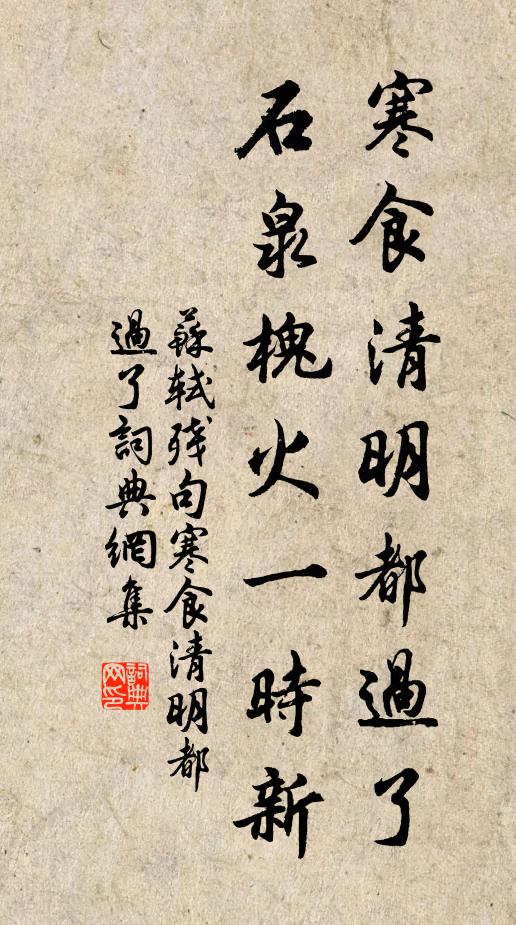 寒食清明都過了
石泉槐火一時新
蘇軾殘句寒食清明都
過了詞典網集
詞典
网印